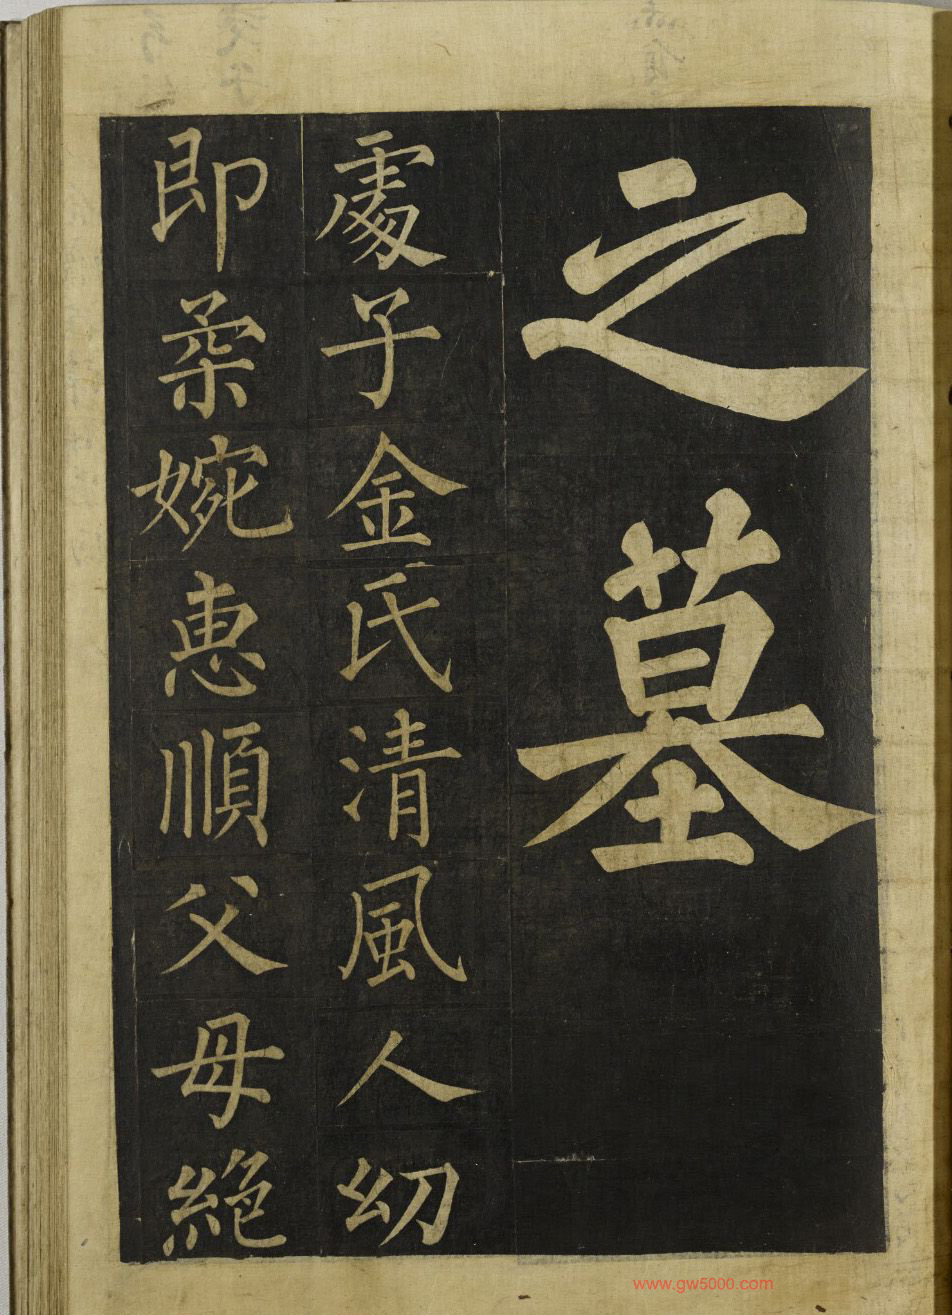 之墓
處子金氏清風人幼
即柔婉惠順父母絕
www.gw5000.com